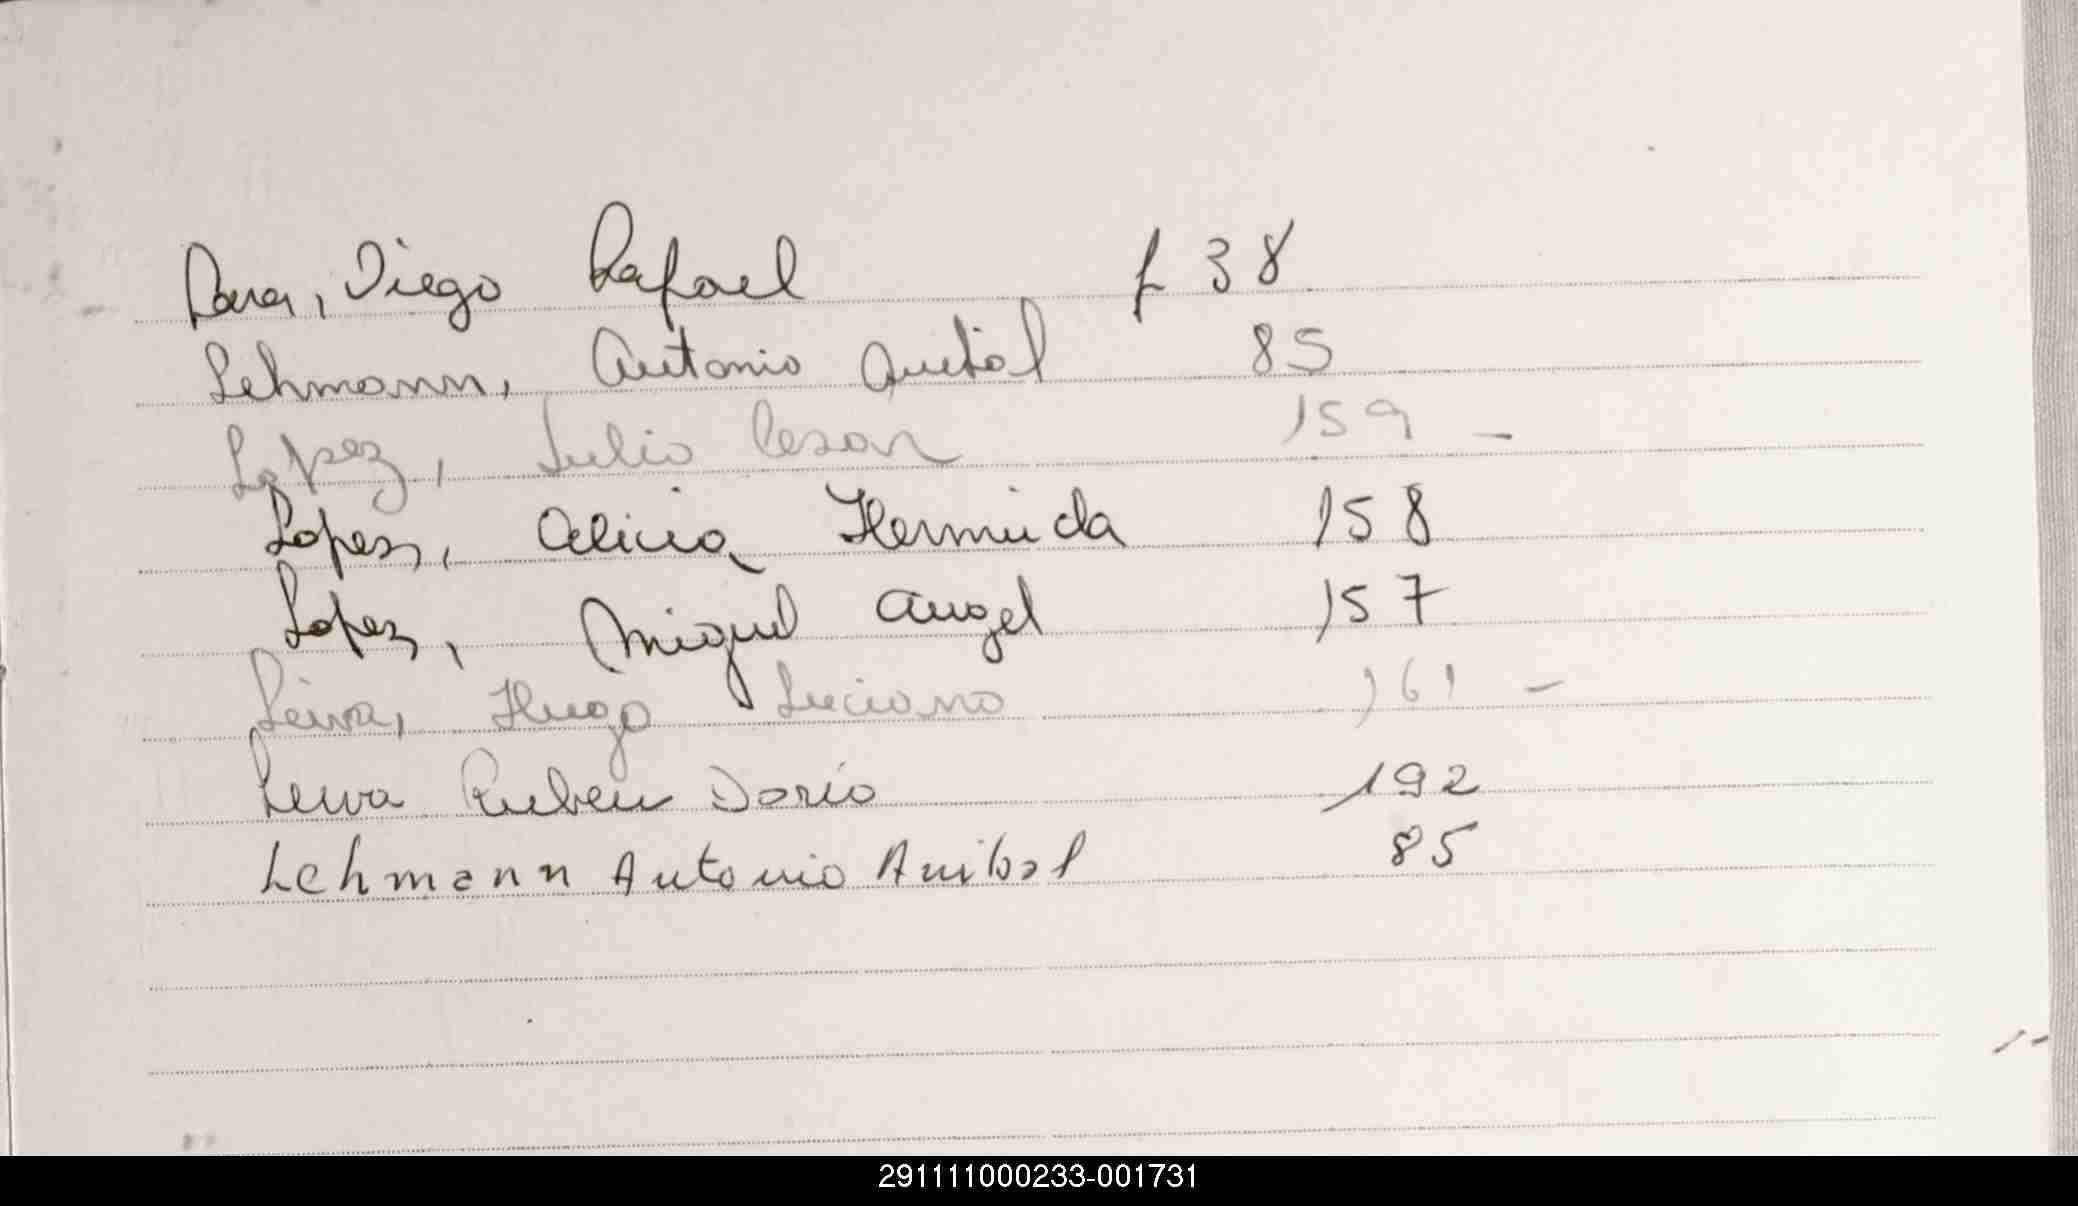 Lara, Diego Rafael f 38
Lehmann, Antonio Anibal 85
Lopez, Julio Cesar 159 -
Lopez, Alicia Hermida 158
Lopez, Miguel Angel 157
Leiva, Hugo Luciano 161 -
Leiva Ruben Dario 192
Lehmann Antonio Anibal 85
291111000233-001731